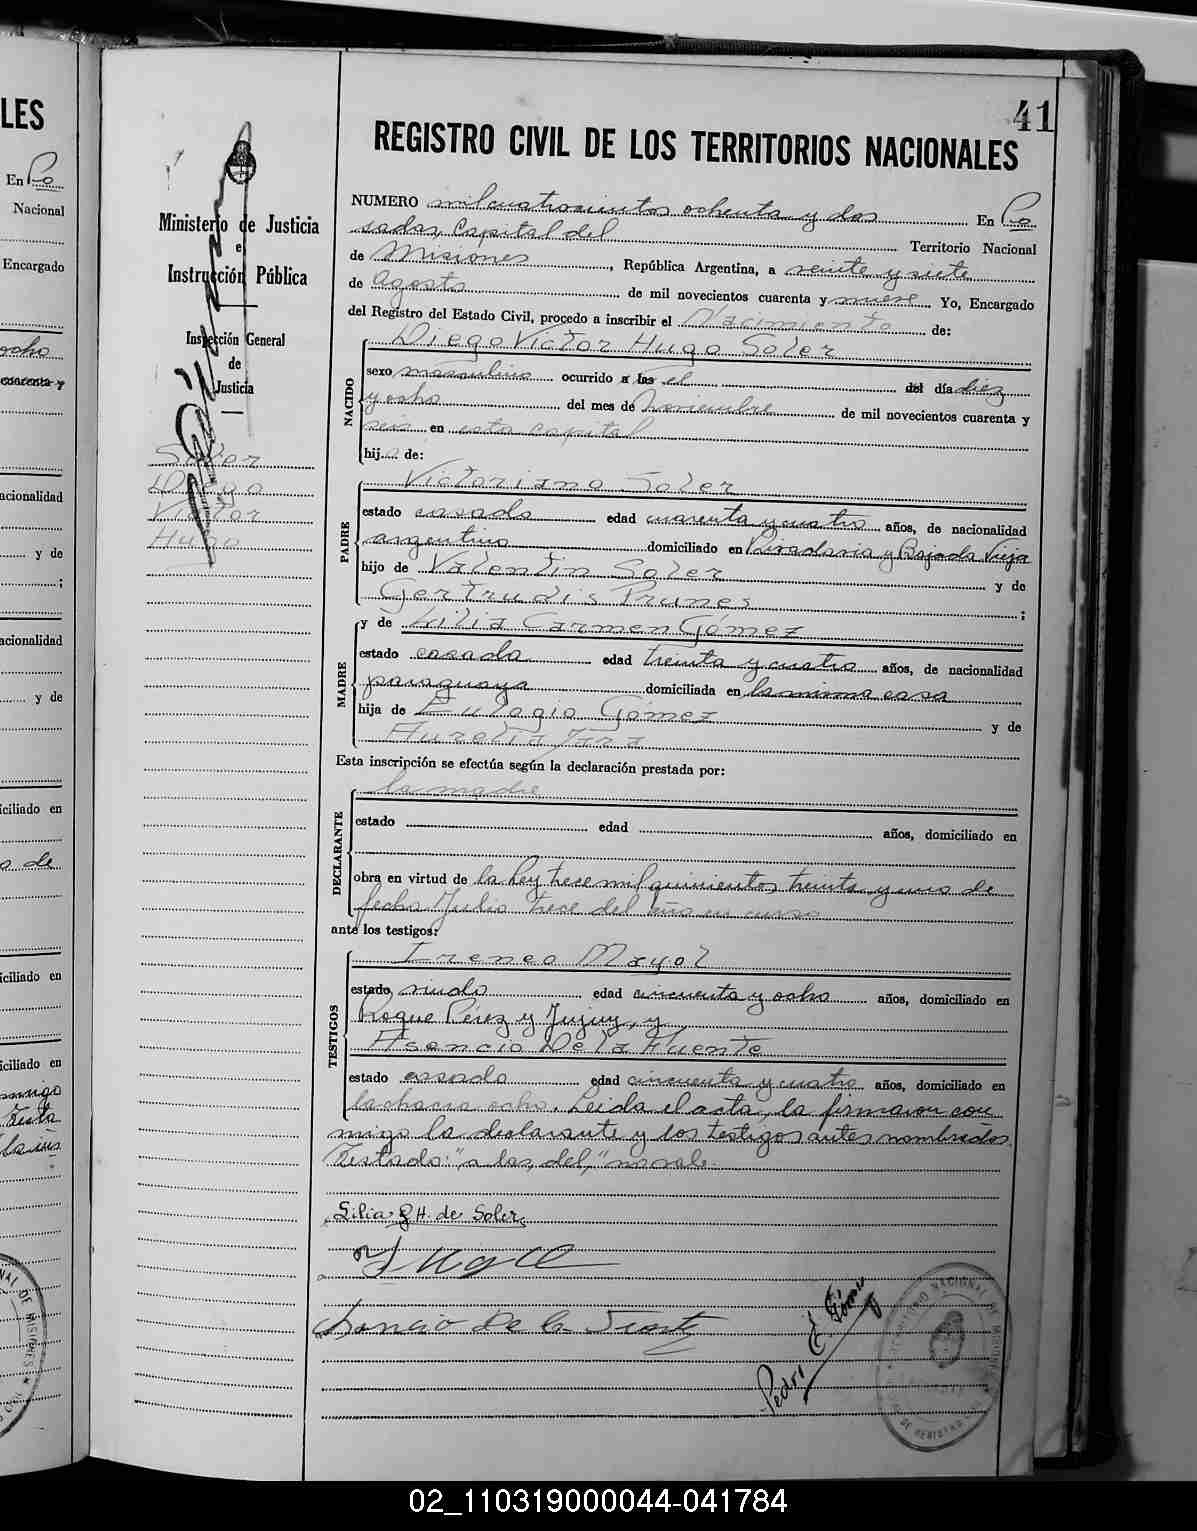 LES
41
REGISTRO CIVIL DE LOS TERRITORIOS NACIONALES
En Po
Nacional
Encargado
ocho
cuarenta y
acionalidad
y de
;
acionalidad
y de
iciliado en
o de
iciliado en
iciliado en
migo
Testa
Ministerio de Justicia
e
Instrucción Pública
Inspección General
de
Justicia
Soler
Diego
Victor
Hugo
NUMERO mil cuatrocientos ochenta y dos En Po
sadas, Capital del Territorio Nacional
de Misiones, República Argentina, a veinte y siete
de Agosto de mil novecientos cuarenta y nueve Yo, Encargado
del Registro del Estado Civil, procedo a inscribir el Nacimiento de:
NACIDO
Diego Victor Hugo Soler
sexo masculino ocurrido a las el del día diez
y ocho del mes de Noviembre de mil novecientos cuarenta y
seis en esta capital
hijo de:
PADRE
Victoriano Soler
estado casado edad cuarenta y cuatro años, de nacionalidad
argentino domiciliado en Rivadavia y Bajada Vieja
hijo de Valentin Soler y de
Gertrudis Prunes ;
MADRE
y de Lilia Carmen Gómez
estado casada edad treinta y cuatro años, de nacionalidad
paraguaya domiciliada en la misma casa
hija de Eulogio Gómez y de
Aurelia Jara
Esta inscripción se efectúa según la declaración prestada por:
DECLARANTE
la madre
estado edad años, domiciliado en
obra en virtud de la Ley trece mil quinientos treinta y uno de
fecha Julio trece del año en curso
ante los testigos:
TESTIGOS
Ireneo Mayol
estado viudo edad cincuenta y ocho años, domiciliado en
Roque Perez y Jujuy, y
Asencio De la Fuente
estado casado edad cincuenta y cuatro años, domiciliado en
la chacra ocho. Leida el acta, la firmaron con
migo la declarante y los testigos antes nombrados.
Testado: "a las, del," no vale.
Lilia G. H. de Soler
Asencio De la Fuente
Pedro E. Gómez
02_110319000044-041784